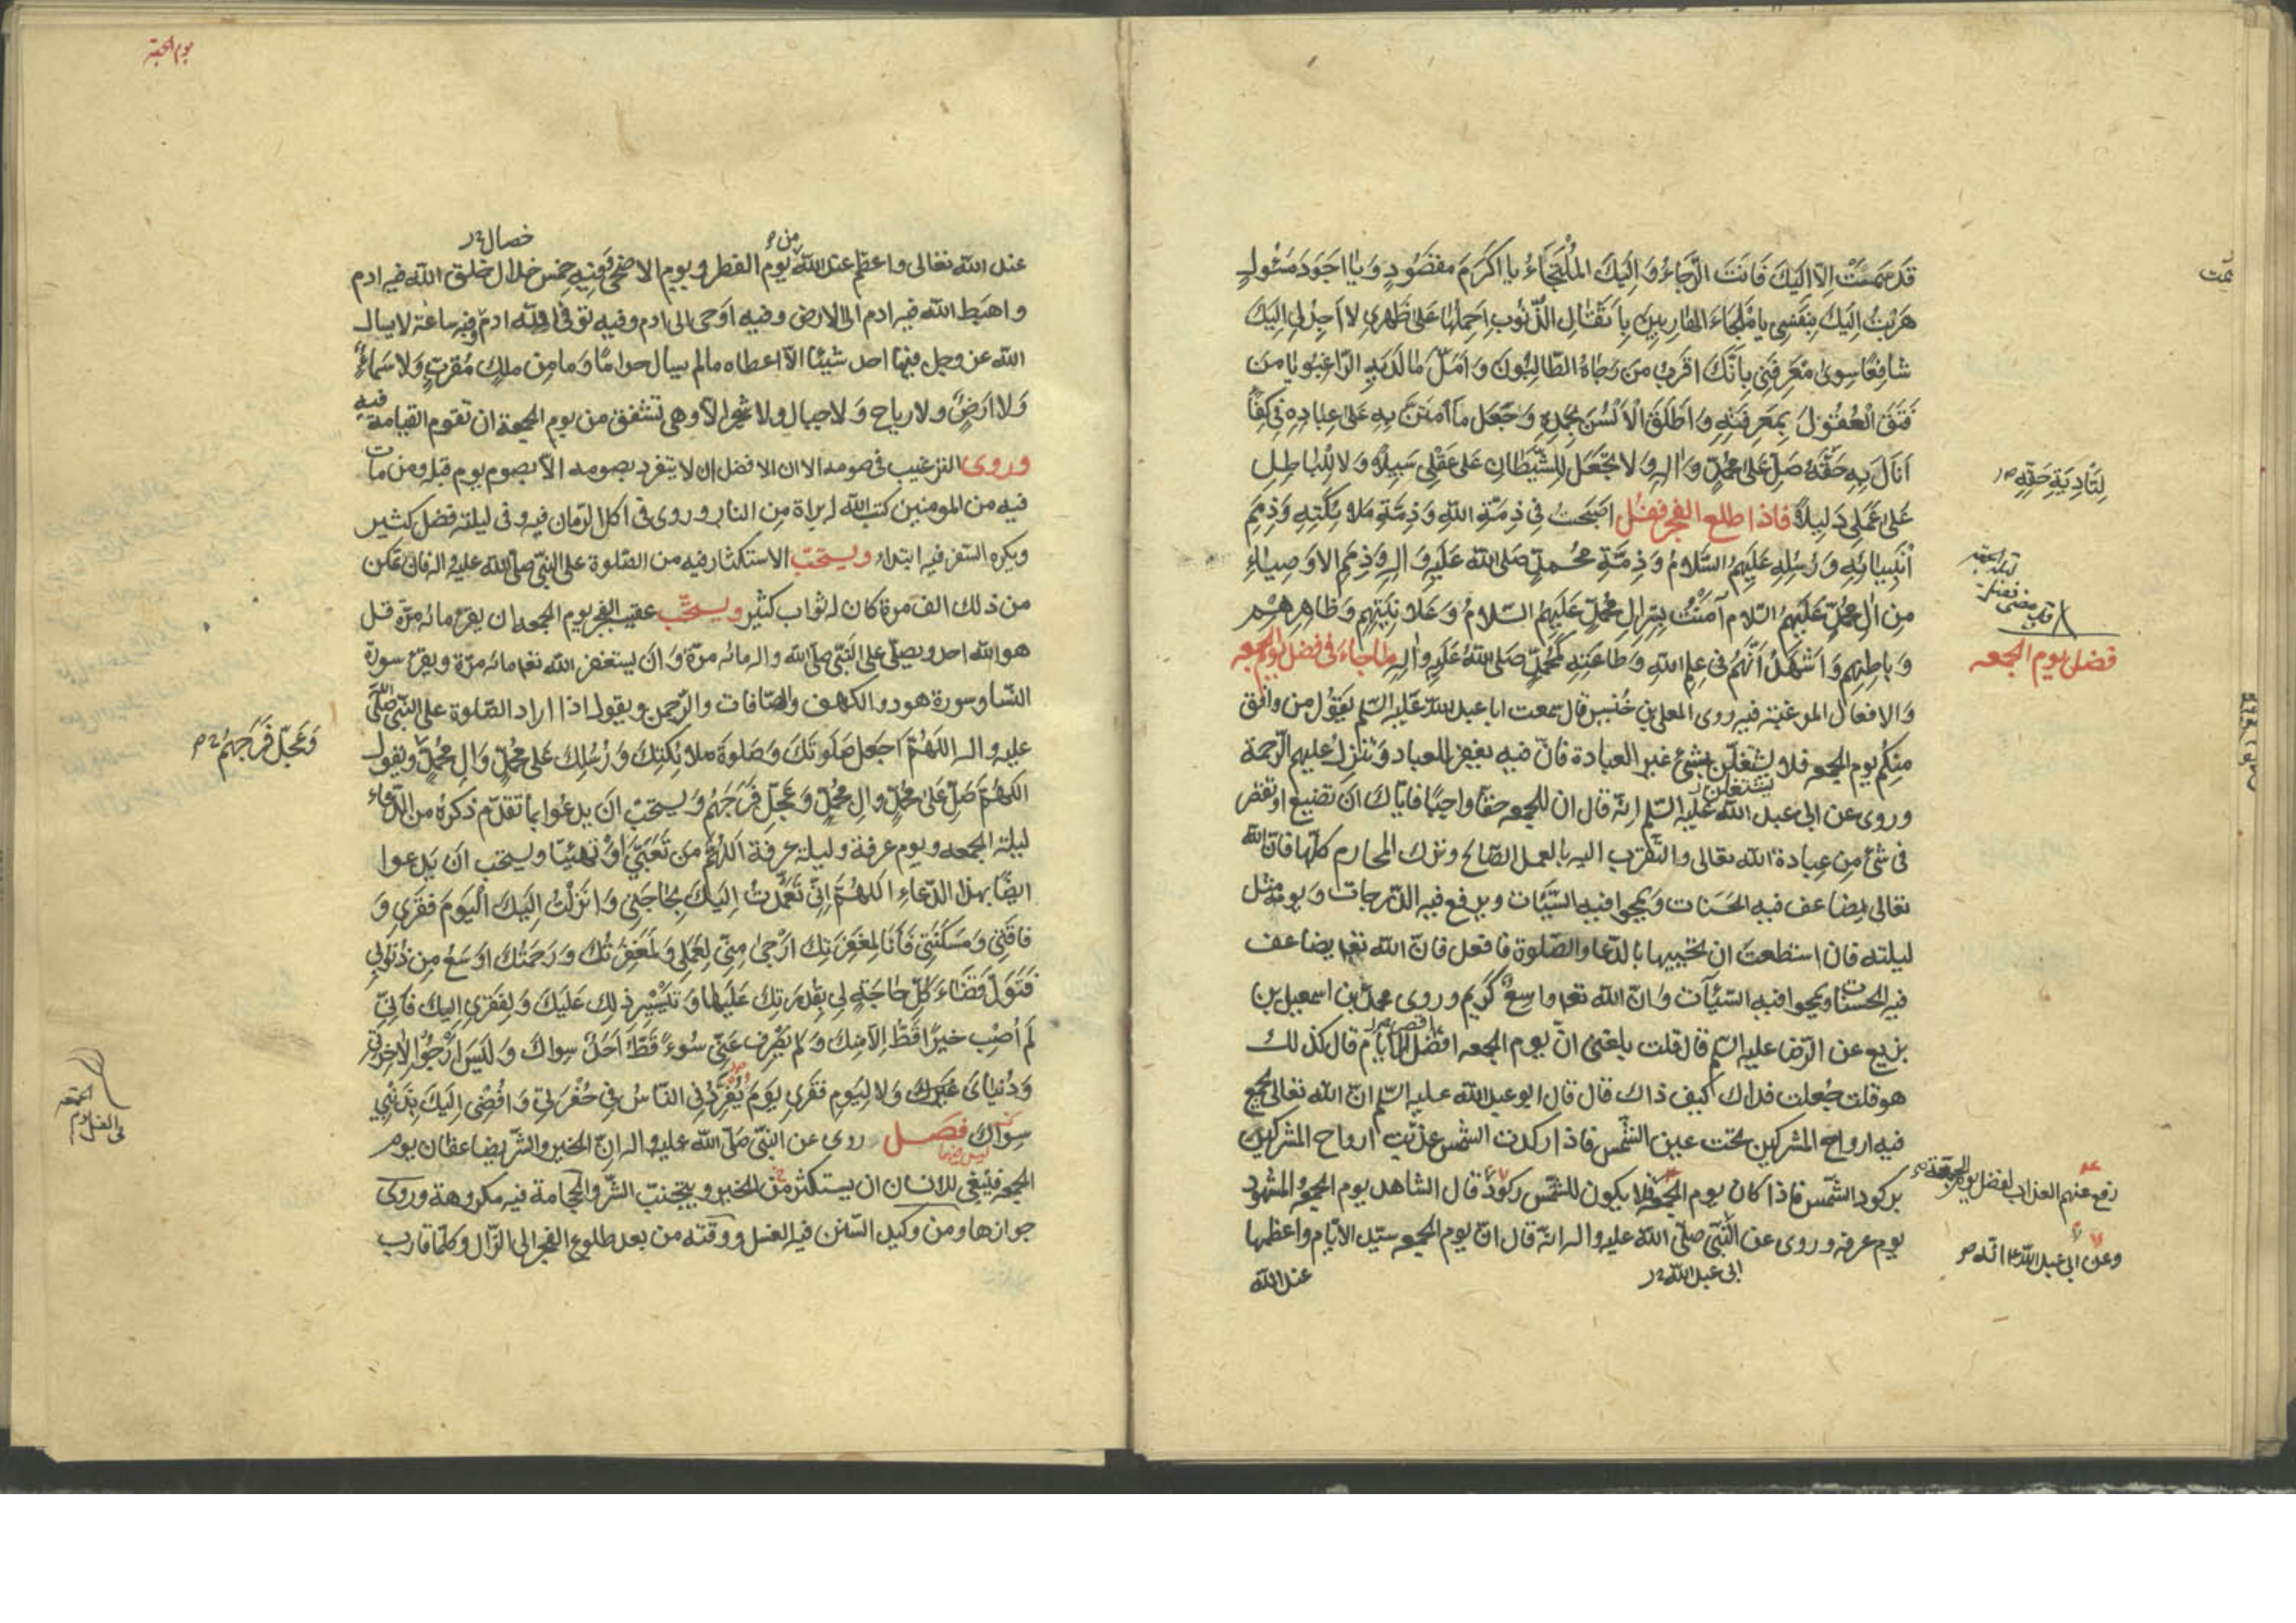 قَدْ صَمَتْ اِلّا اِلَيْكَ فَاَنْتَ الرَّجَاءُ وَ اِلَيْكَ الْمُلْتَجَاءُ يا اَكْرَمَ مَقْصُودٍ وَ يا اَجْوَدَ مَسْئُولٍ
هَرَبْتُ اِلَيْكَ بِنَفْسِي يا مَلْجَاءَ الهارِبينَ بِاَثْقالِ الذُّنُوبِ اَحْمِلُها عَلى ظَهْرِي لا اَجِدُ لِي اِلَيْكَ
شافِعًا سِوى مَعْرِفَتِي بِاَنَّكَ اَقْرَبُ مَنْ رَجَاهُ الطَّالِبُونَ وَ اَمَّلَ ما لَدَيْهِ الرّاغِبُونَ يا مَنْ
فَتَقَ الْعُقُولَ بِمَعْرِفَتِهِ وَ اَطْلَقَ الْاَلْسُنَ بِحَمْدِهِ وَ جَعَلَ ما امْتَنَّ بِهِ عَلى عِبادِهِ فِي كِفَاءٍ
اَنَالَ بِهِ حَقَّهُ صَلِّ عَلى مُحَمَّدٍ وَ الِهِ وَ لا تَجْعَلْ لِلشَّيْطَانِ عَلى عَقْلِي سَبِيلًا وَ لا لِلْباطِلِ
لِتَأْدِيَةِ حَقِّهِ
عَلى عَمَلِي دَلِيلًا فاذا طلع الفجر فقل اَصْبَحْتُ فِي ذِمَّةِ اللهِ وَ ذِمَّةِ مَلائِكَتِهِ وَ ذِمَمِ
اَنْبِيائِهِ وَ رُسُلِهِ عَلَيْهِمُ السَّلامُ وَ ذِمَّةِ مُحَمَّدٍ صَلَّى اللهُ عَلَيْهِ وَ الِهِ وَ ذِمَمِ الاَوْصِياءِ
مِنْ الِ مُحَمَّدٍ عَلَيْهِمُ السَّلام آمَنْتُ بِسِرِّ الِ مُحَمَّدٍ عَلَيْهِمُ السَّلامُ وَ عَلانِيَتِهِمْ وَ ظاهِرِهِمْ
وَ باطِنِهِمْ وَ اَشْهَدُ اَنَّهُمْ فِي عِلْمِ اللهِ وَ طاعَتِهِ كَمُحَمَّدٍ صَلَّى اللهُ عَلَيْهِ وَ الِهِ ما جاءَ فى فضل يوم الجمعه
فضل يوم الجمعه
وَ الافعال المرغبة فيه روى المعلى بن خُنَيس قال سمعت ابا عبد الله عَلَيه السّلم يَقُول من وافق
منكُم يوم الجمعه فلا يشتغلن بشئ غير العبادة فانّ فيه يغفر للعباد وَ تنزل عليهم الرّحمة
يشتغلن
وروى عن ابى عبد الله عليه السّلم انّه قال ان للجمعه حقّا واجبًا فايّاك اَنْ تضيع او تقصر
فى شئ من عِبادة الله تعالى والتّقرّب اليه بالعمل الصّالح وترك المحارم كلّها فانّ الله
تعالى يضاعف فيه الحَسَنات وَ يمحوا فيه السّيّئات ويرفع فيه الدّرجات وَ يومه مثل
ليلته فان استطعتَ ان تحييها بالدّعا والصّلوة فافعل فانّ الله تعا يضاعف
فيه الحسنات ويمحوا فيه السّيّئات وَ انّ الله تعا واسِعٌ كَرِيم وروى محمد بن اسمعيل بن
بزيع عن الرّضا عليه السّلم قال قلت بلغنى انّ يوم الجمعه اقصر الايّام قال كذلك
هو قلت جُعلت فداك كيف ذاك قال قال ابو عبد الله عليه السّلم انّ الله تعالى يجمع
فيه ارواح المشركين تحت عين الشَّمس فاذا ركدت الشمس عذّبت ارواح المشركين
بركود الشّمس فاذا كان يوم الجمعة فلا يكون للشّمس ركود قال الشاهد يوم الجمعه والمشهود
رفع عنهم العذاب لفضل يوم الجمعة
يوم عرفه وروى عن النّبىّ صلّى الله عليه واله انّه قال انّ يوم الجمعه سيّد الايّام واعظمها
وعن ابى عبد الله ع انّه
ابى عبد الله
عند الله
يوم الجمعة
خصال
من
عند الله تعالى واعظم عند الله يوم الفطر ويوم الاضحى وفيه خمس خلال خلق الله فيه ادم
واهبط الله فيه ادم الى الارض وفيه اوحى الى ادم وفيه توفى الله ادم وفيه ساعة لا يسال
الله عز وجل فيها احد شيئا الّا اعطاه ما لم يسال حرامًا وَ ما مِن ملك مُقرّبٍ وَ لا سَماءٍ
وَ لا اَرْضٍ ولا رياح وَ لا جبال ولا شجر الّا وهى تشفق من يوم الجمعة ان تقوم القيامة فيه
وروى الترغيب فى صومه الا ان الافضل ان لا يتفرد بصومه الّا بصوم يوم قبله ومن مات
فيه من المومنين كتب الله له براة مِن النار وروى فى اكل الرّمان فيه وفى ليلته فضل كثير
ويكره السّفر فيه ابتداء ويستحبّ الاستكثار فيه من الصّلوة على النّبىّ صلّى الله عليه واله فان تمكن
من ذلك الف مرة كان له ثواب كثير ويستحبّ عقيب الفجر يوم الجمعه ان يقرء مائه مرّة قل
هو الله احد ويصلّى على النّبىّ صلّى الله واله مائه مرّة وَ انْ يستغفر الله تعا مائه مرّة ويقرء سورة
النّسا وسورة هود والكهف والصّافات والرّحمن ويقول اذا اراد الصّلوة على النّبىّ صلّى الله
عليه واله اللّهُمَّ اجْعَلْ صَلَواتِكَ وَ صَلَوةَ مَلائِكَتِكَ وَ رُسُلِكَ عَلى مُحَمَّدٍ وَ الِ مُحَمَّدٍ ويقول
وَ عَجِّلْ فَرَجَهُمْ
اللّهُمَّ صَلِّ عَلى مُحَمَّدٍ وَ الِ مُحَمَّدٍ وَ عَجِّلْ فَرَجَهُمْ وَ يستحبّ انَ يدعُوا بما تقدّم ذكرهُ من الدّعاء
ليلة الجمعه ويوم عرفة وليلة عرفة اَللّهُمَّ مَنْ تَعَبَّىَ اَوْ تَهَيَّئا ويستحب انَ يَدعوا
ايضًا بهذا الدّعاءِ اَللّهُمَّ اِنِّي تَعَمَّدْتُ اِلَيْكَ بِحَاجَتِي وَ اَنْزَلْتُ اِلَيْكَ الْيَوْمَ فَقْرِي وَ
فاقَتِي وَ مَسْكَنَتِي فَاَنَا لِمَغْفِرَتِكَ اَرْجى مِنِّي لِعَمَلِي وَ لَمَغْفِرَتُكَ وَ رَحْمَتُكَ اَوْسَعُ مِنْ ذُنُوبِي
فَتَوَلَّ قَضاءَ كُلِّ حاجَةٍ لِي بِقُدْرَتِكَ عَلَيْها وَ تَيْسِيرِ ذلِكَ عَلَيْكَ وَ لِفَقْرِي اِلَيْكَ فَاِنِّي
لَمْ اُصِبْ خيرًا قَطُّ اِلّا مِنْكَ وَ لَمْ يَصْرِفْ عَنِّي سُوءً قَطُّ اَحَدٌ سِواكَ وَ لَيْسَ اَرْجُوا لِاخِرَتِي
وَ دُنْيايَ غَيْرَكَ وَ لا لِيَومِ فَقْرِي يَوْمَ يُفْرِدُنِي النّاسُ فِي حُفْرَتِي وَ اُفْضِي اِلَيْكَ بِذَنْبِي
سِواكَ فصل روى عن النّبىّ صَلّى الله عليه واله انّ الخير والشّر يضاعفان يوم
الجمعه فينبغى للانسان ان يستكثر من الخير ويتجنّب الشّرّ والحجامة فيه مكروهة وروى
جوازها ومن وكيد السّنن فيه الغسل ووقته من بعد طلوع الفجر الى الزّوال وكلّما قارب